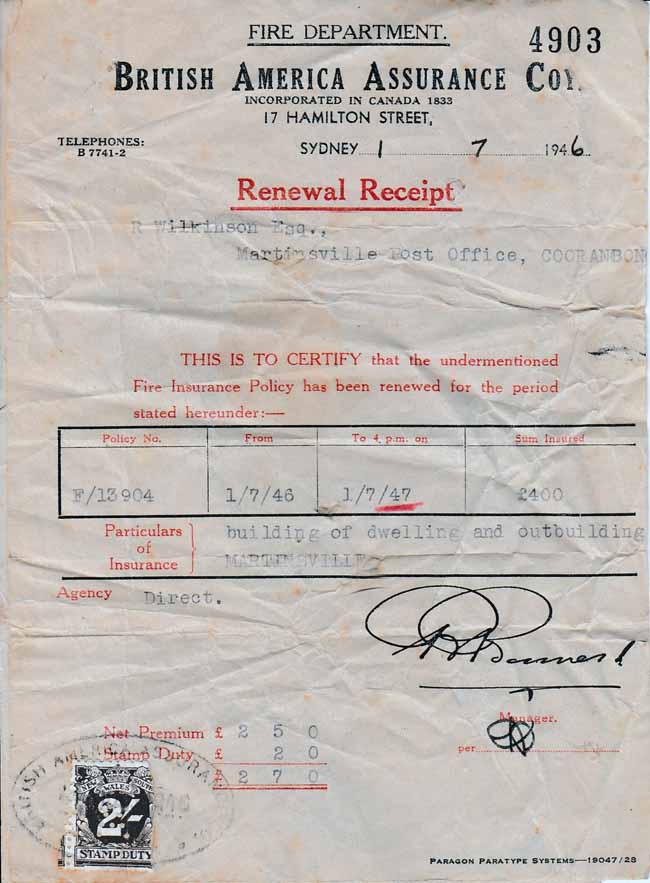 FIRE DEPARTMENT.
4903
BRITISH AMERICA ASSURANCE COY.
INCORPORATED IN CANADA 1833
17 HAMILTON STREET,
TELEPHONES:
B 7741-2
SYDNEY 1 7 1946
Renewal Receipt
R Wilkinson Esq.,
Martinsville Post Office, COORANBON
THIS IS TO CERTIFY that the undermentioned
Fire Insurance Policy has been renewed for the period
stated hereunder:—
Policy No. From To 4 p.m. on Sum Insured
F/13904 1/7/46 1/7/47 £400
Particulars of Insurance building of dwelling and outbuilding
MARTINSVILLE
Agency Direct.
Manager.
Net Premium £ 2 5 0
Stamp Duty £ 2 0
£ 2 7 0
per
BRITISH AMERICA ASSURAN
WALES
2/-
STAMP DUTY
PARAGON PARATYPE SYSTEMS—19047/28